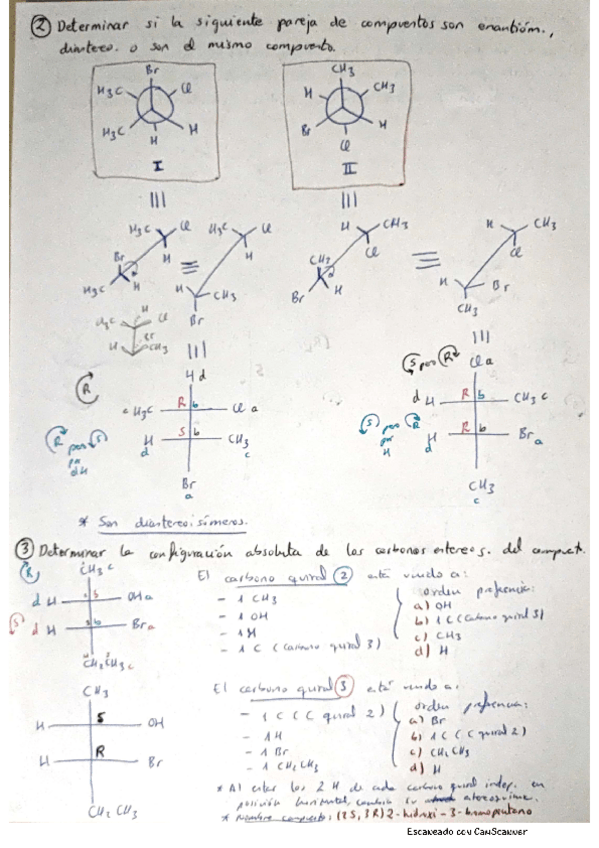 ② Determinar si la siguiente pareja de compuestos son enantióm.,
diastereo. o son el mismo compuesto.
Br
H3C Cl
H3C H
H
I
CH3
H CH3
Br H
Cl
II
H3C Cl H3C Cl
Br H H
H3C H H CH3
Br
H CH3 H CH3
CH3 Cl Cl
Br H H Br
CH3
H Cl
H CH3
R
H d
c H3C R b Cl a
R por S
por
d H
H S b CH3
d c
Br
a
S por R
Cl a
d H R b CH3 c
S por R
por
H
H R b Br a
d
CH3
c
* Son diastereoisómeros.
③ Determinar la configuración absoluta de los carbonos estereog. del compuest.
R CH3 c
d H OH a
S d H b Br a
CH2CH3 c
El carbono quiral ② está unido a:
- 1 CH3
- 1 OH
- 1 H
- 1 C (carbono quiral 3)
orden preferencia:
a) OH
b) 1 C (Carbono quiral 3)
c) CH3
d) H
CH3
H S OH
H R Br
CH2 CH3
El carbono quiral ③ está unido a:
- 1 C (C quiral 2)
- 1 H
- 1 Br
- 1 CH2CH3
orden preferencia:
a) Br
b) 1 C (C quiral 2)
c) CH2CH3
d) H
* Al estar los 2 H de cada carbono quiral indep. en
posición horizontal, cambia su
* Nombre compuesto: (2S, 3R) 2-hidroxi-3-bromopentano
Escaneado con CamScanner